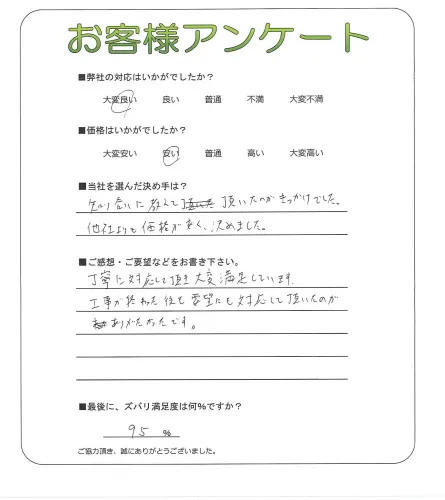 お客様アンケート
■弊社の対応はいかがでしたか?
大変良い 良い 普通 不満 大変不満
■価格はいかがでしたか?
大変安い 安い 普通 高い 大変高い
■当社を選んだ決め手は?
知り合いに教えて頂いたのがきっかけでした。
他社よりも価格が安く、決めました。
■ご感想・ご要望などをお書き下さい。
丁寧に対応して頂き大変満足しています。
工事が終わった後も要望にも対応して頂いたのが
ありがたかったです。
■最後に、ズバリ満足度は何%ですか?
95 %
ご協力頂き、誠にありがとうございました。